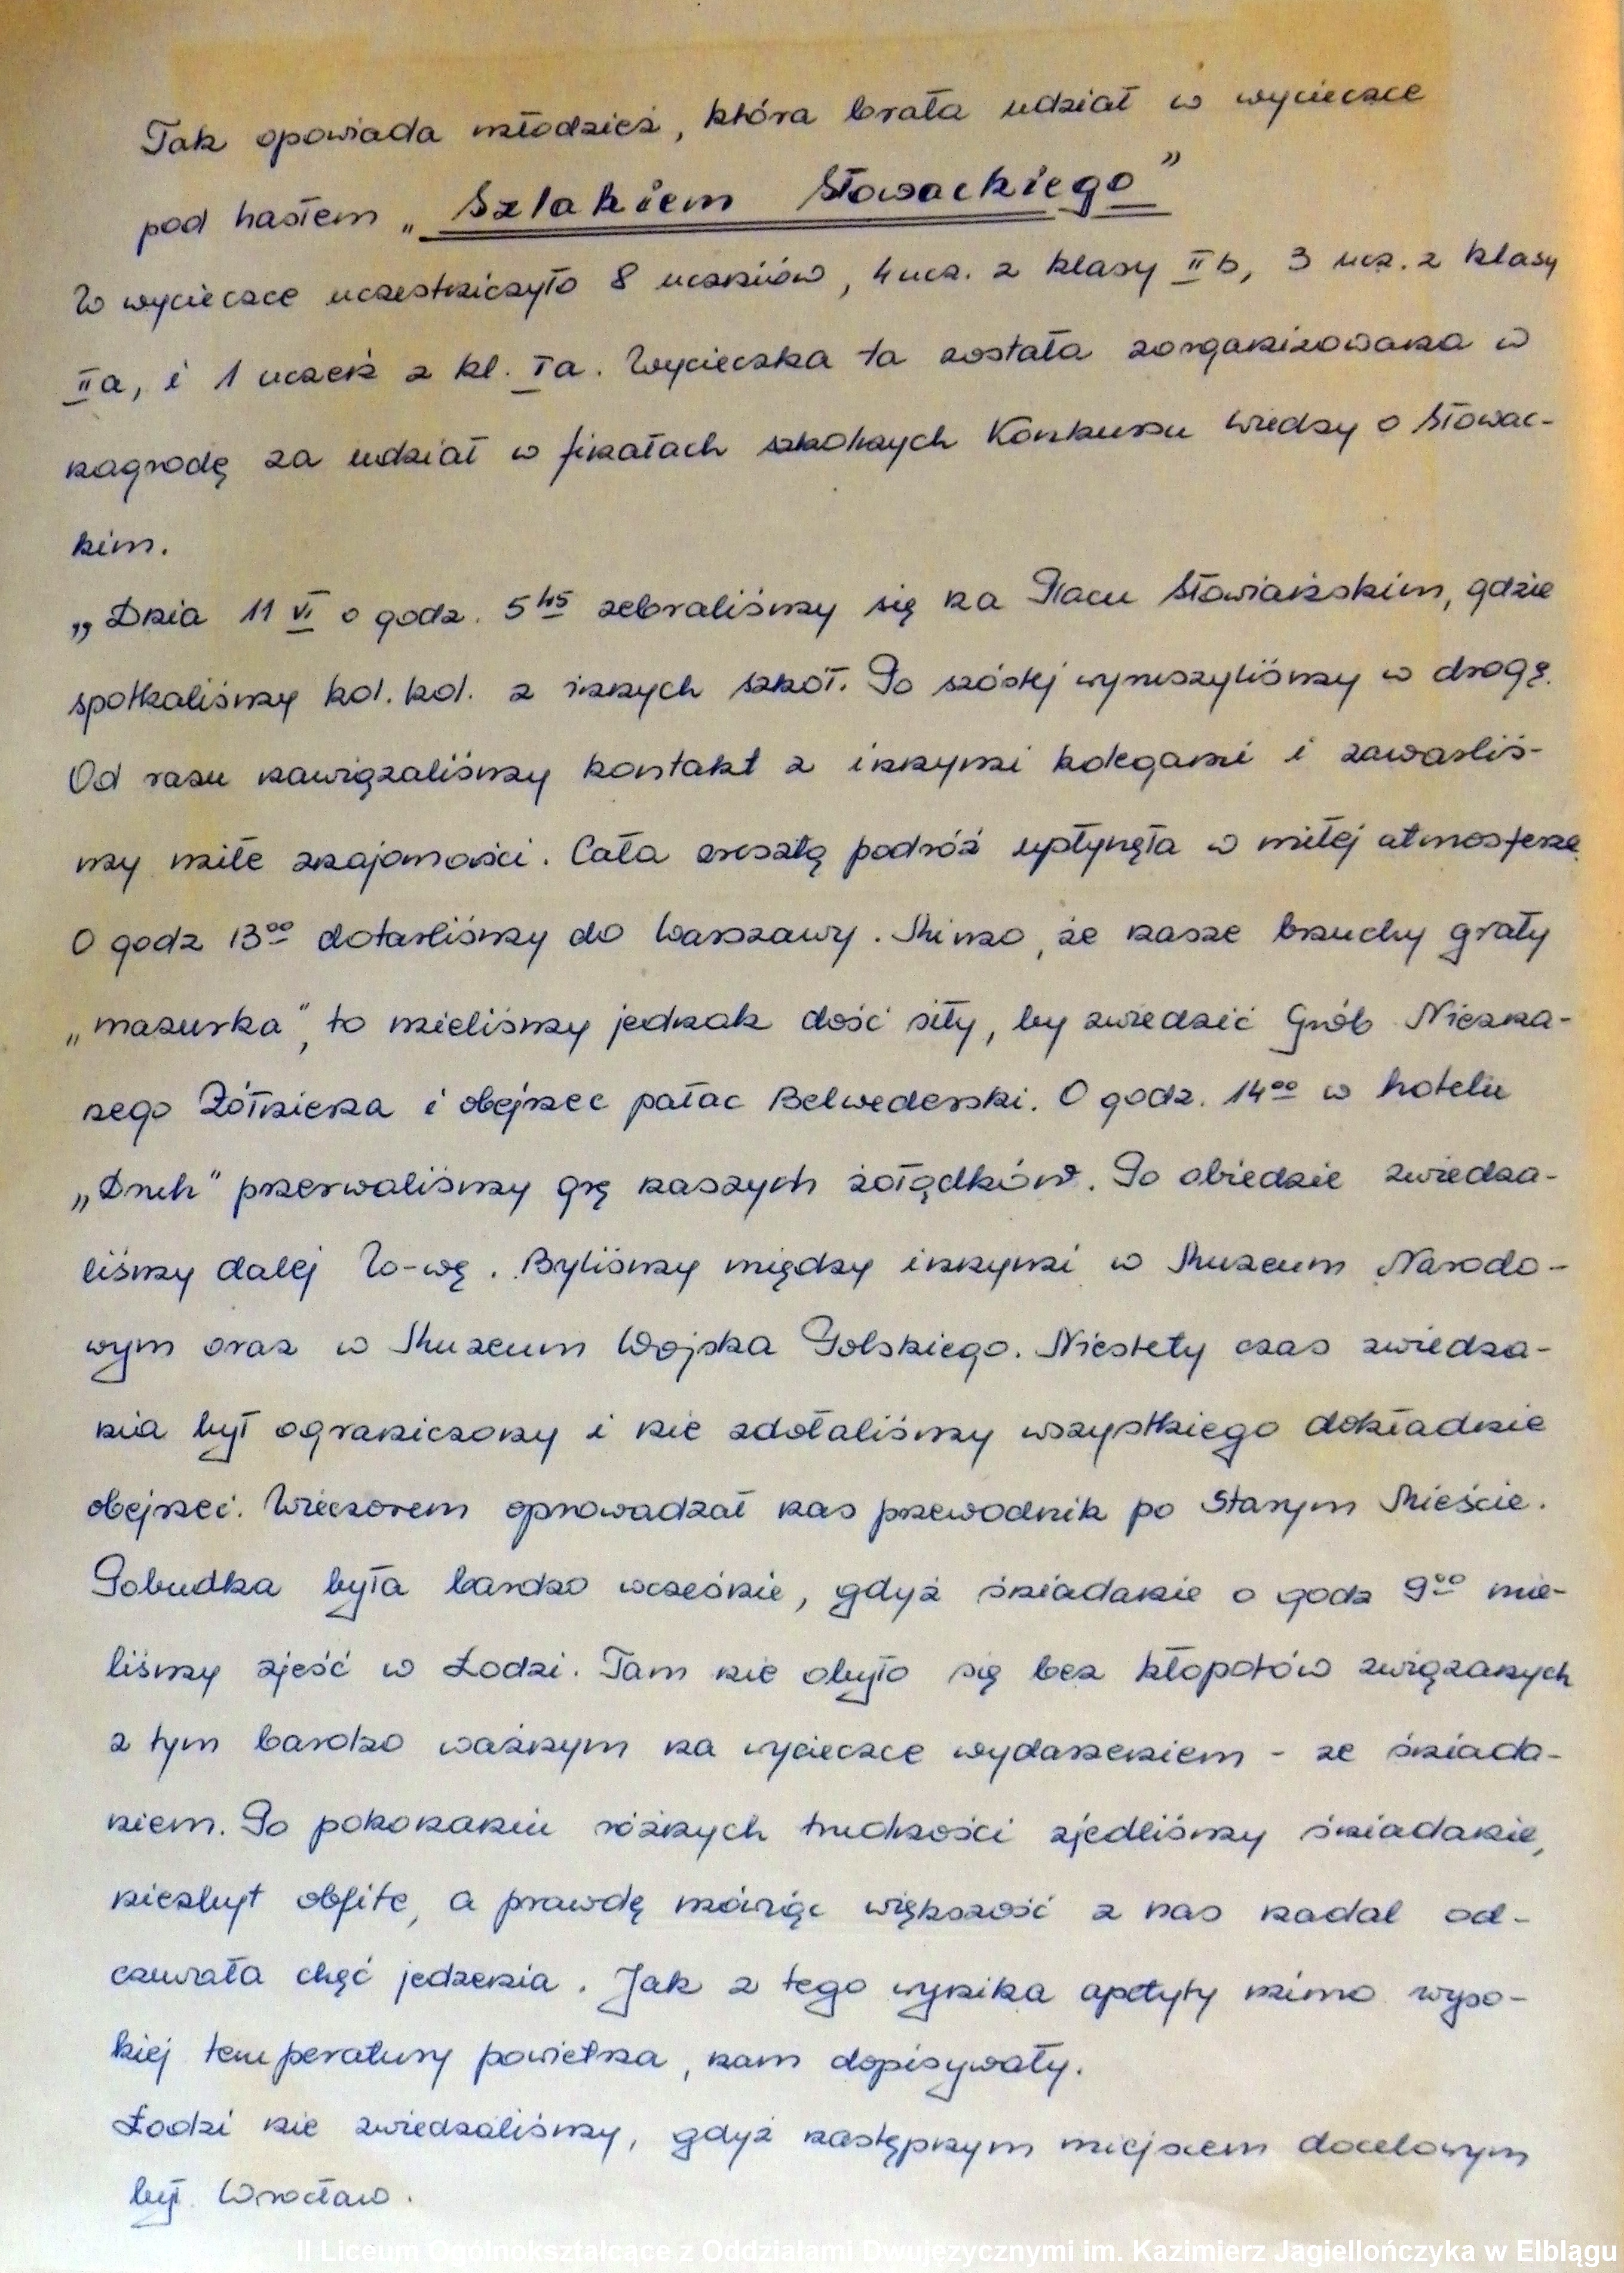 Tak opowiada młodzież, która brała udział w wycieczce
pod hasłem „Szlakiem Słowackiego”
W wycieczce uczestniczyło 8 uczniów, 4 ucz. z klasy II b, 3 ucz. z klasy
II a, i 1 uczeń z kl. I a. Wycieczka ta została zorganizowana w
nagrodę za udział w finałach szkolnych Konkursu wiedzy o Słowac-
kim.
„Dnia 11 VI o godz. 5 45 zebraliśmy się na Placu Słowiańskim, gdzie
spotkaliśmy kol. kol. z innych szkół. Po szóstej wyruszyliśmy w drogę.
Od razu nawiązaliśmy kontakt z innymi kolegami i zawarliś-
my miłe znajomości. Cała zresztą podróż upłynęła w miłej atmosferze.
O godz 13 00 dotarliśmy do Warszawy. Mimo, że nasze brzuchy grały
„mazurka”, to mieliśmy jednak dość siły, by zwiedzić Grób Niezna-
nego Żołnierza i obejrzec pałac Belwederski. O godz. 14 00 w hotelu
„Druh” przerwaliśmy grę naszych żołądków. Po obiedzie zwiedza-
liśmy dalej W-wę. Byliśmy między innymi w Muzeum Narodo-
wym oraz w Muzeum Wojska Polskiego. Niestety czas zwiedza-
nia był ograniczony i nie zdołaliśmy wszystkiego dokładnie
obejrzeć. Wieczorem oprowadzał nas przewodnik po Starym Mieście.
Pobudka była bardzo wcześnie, gdyż śniadanie o godz 9 00 mie-
liśmy zjeść w Łodzi. Tam nie obyło się bez kłopotów związanych
z tym bardzo ważnym na wycieczce wydarzeniem - ze śniada-
niem. Po pokonaniu różnych trudności zjedliśmy śniadanie,
niezbyt obfite, a prawdę mówiąc większość z nas nadal od-
czuwała chęć jedzenia. Jak z tego wynika apetyty mimo wyso-
kiej temperatury powietrza, nam dopisywały.
Łodzi nie zwiedzaliśmy, gdyż następnym miejscem docelowym
był Wrocław.
II Liceum Ogólnokształcące z Oddziałami Dwujęzycznymi im. Kazimierz Jagiellończyka w Elblągu